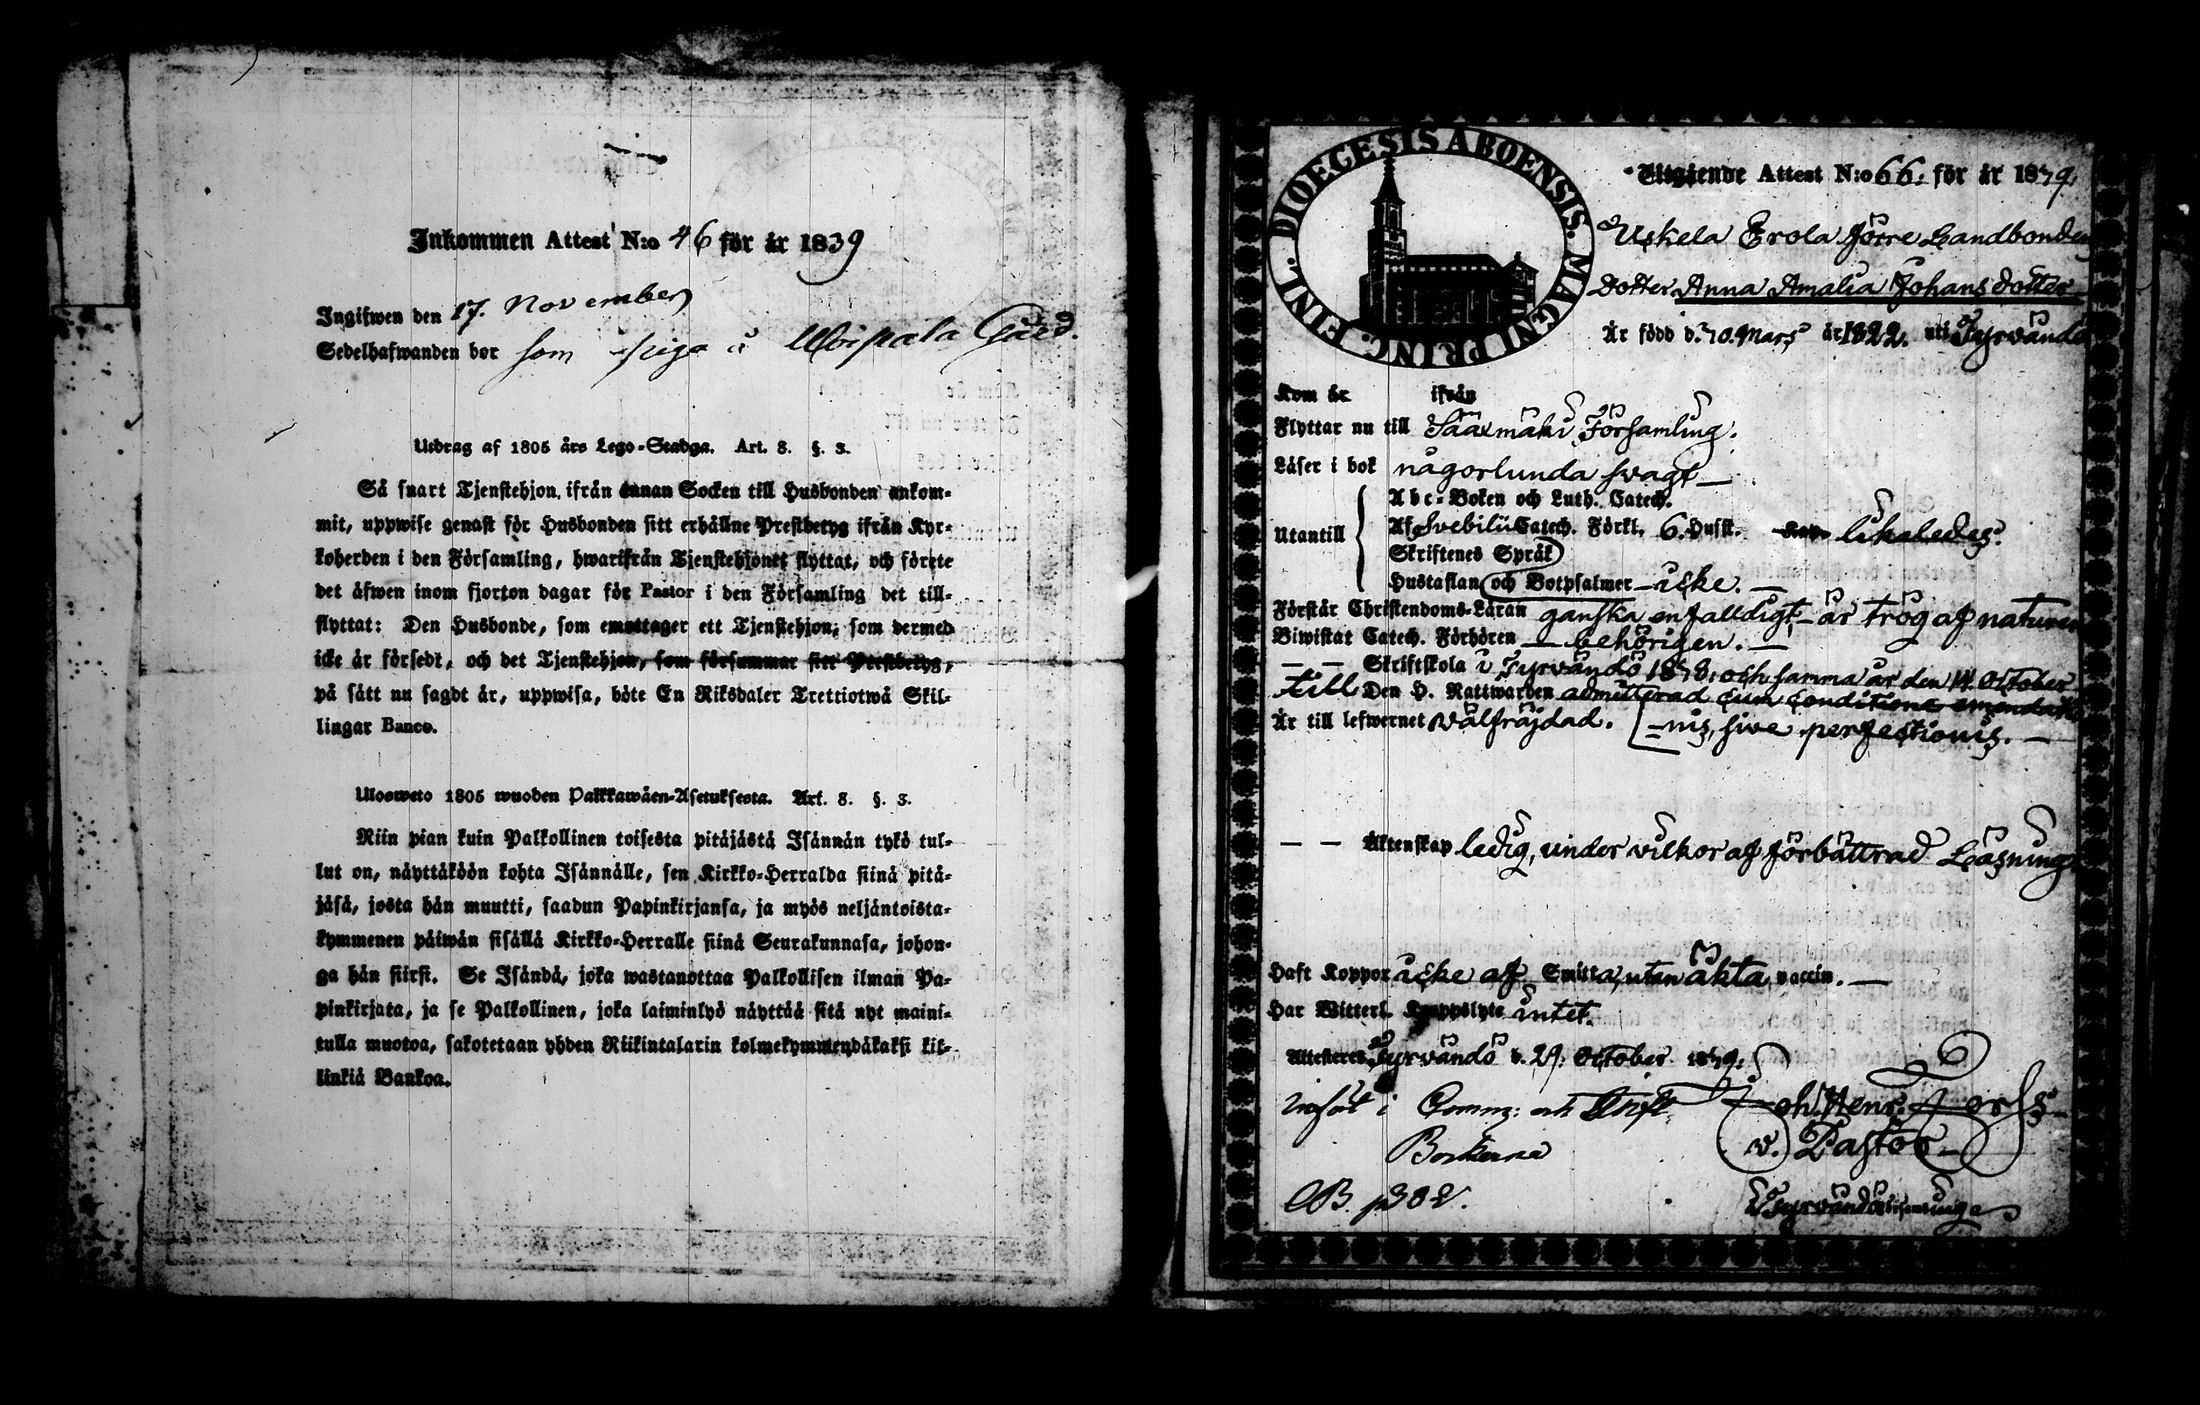 Inkommen Attest N:o 46 för år 1839
Ingifwen den 17. November
Sedelhafwanden bor som piga å Woipala Gård.
Utdrag af 1805 års Lego-Stadga. Art. 8. §. 3.
Så snart Tjenstehjon ifrån annan Socken till Husbonden ankom-
mit, uppwise genast för Husbonden sitt erhållne Prestbetyg ifrån Kyr-
koherden i den Församling, hwarifrån Tjenstehjonet flyttat, och förete
det äfwen inom fjorton dagar för Pastor i den Församling det till-
flyttat: Den Husbonde, som emottager ett Tjenstehjon, som dermed
icke är försedt, och det Tjenstehjon, som försummar sitt Prestbetyg,
på sätt nu sagdt är, uppwisa, böte En Riksdaler Trettiotwå Skil-
lingar Banco.
Uloswето 1805 wuoden Palkkawäen-Asetuksesta. Art. 8. §. 3.
Niin pian kuin Palkollinen toisesta pitäjästä Isännän tykö tul-
lut on, näyttäköön kohta Isännälle, sen Kirkko-Herralda siinä pitä-
jäsä, josta hän muutti, saadun Papinkirjansa, ja myös neljäntoista-
kymmenen päiwän sisällä Kirkko-Herralle siinä Seurakunnasa, johon-
ga hän siirsi. Se Isändä, joka wastanottaa Palkollisen ilman Pa-
pinkirjata, ja se Palkollinen, joka laiminlyö näyttää sitä nyt maini-
tulla muotoa, sakotetaan yhden Riikintalarin kolmekymmendäkaksi kil-
linkiä Bankoa.
DIOECESIS ABOENSIS. MAGNI PRINC. FINL.
Utgående Attest N:o 66. för år 1839.
Uskela Erola förre Landbonde
Dotter Anna Amalia Johansdotter
Är född d. 30. Mars år 1822. uti Tyrvändö
Kom år ifrån
Flyttar nu till Sääxmäki Församling.
Läser i bok någorlunda svagt —
Utantill
Abc-Boken och Luth. Catech.
Af Svebilii Catech. Förkl. 6. Husst. likaledes.
Skriftenes Språk
Hustaflan och Botpsalmer — icke. —
Förstår Christendoms-Läran ganska enfalldigt — är trög af naturen
Biwistat Catech. Förhören — behörigen. —
— — Skriftskola i Tyrvändö 1838. och samma år den 14 October
till Den H. Nattwarden admitterad cum conditione emendatio
Är till lefwernet välfräjdad. — nis, sive perfectionis. —
— — Äktenskap ledig, under vilkor af förbättrad Läsning.
Haft Koppor icke af Smitta, utan äkta vaccin. —
Har Witterl. Kroppslyte intet.
Attesteres Tyrvändö d. 29. October 1839.
Infört i Comm: och Skrift
Böckerne
CB. p 382.
Joh. Henr. Forss
v. Pastor
i Tyrvändö församling